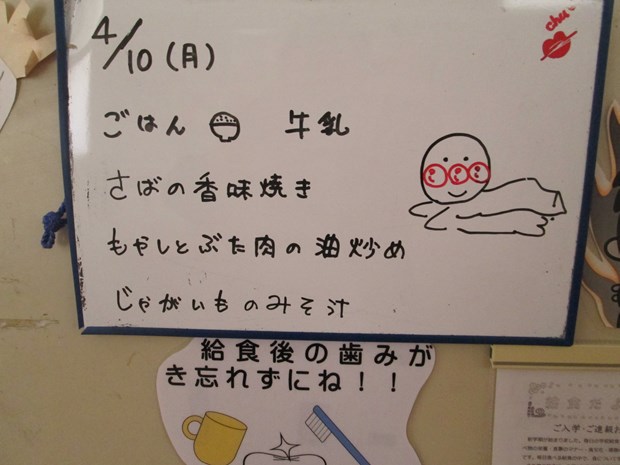 4/10(月)
chu
ごはん 牛乳
さばの香味焼き
もやしとぶた肉の油炒め
じゃがいものみそ汁
給食後の歯みが
き忘れずにね!!
ご入学・ご進級お